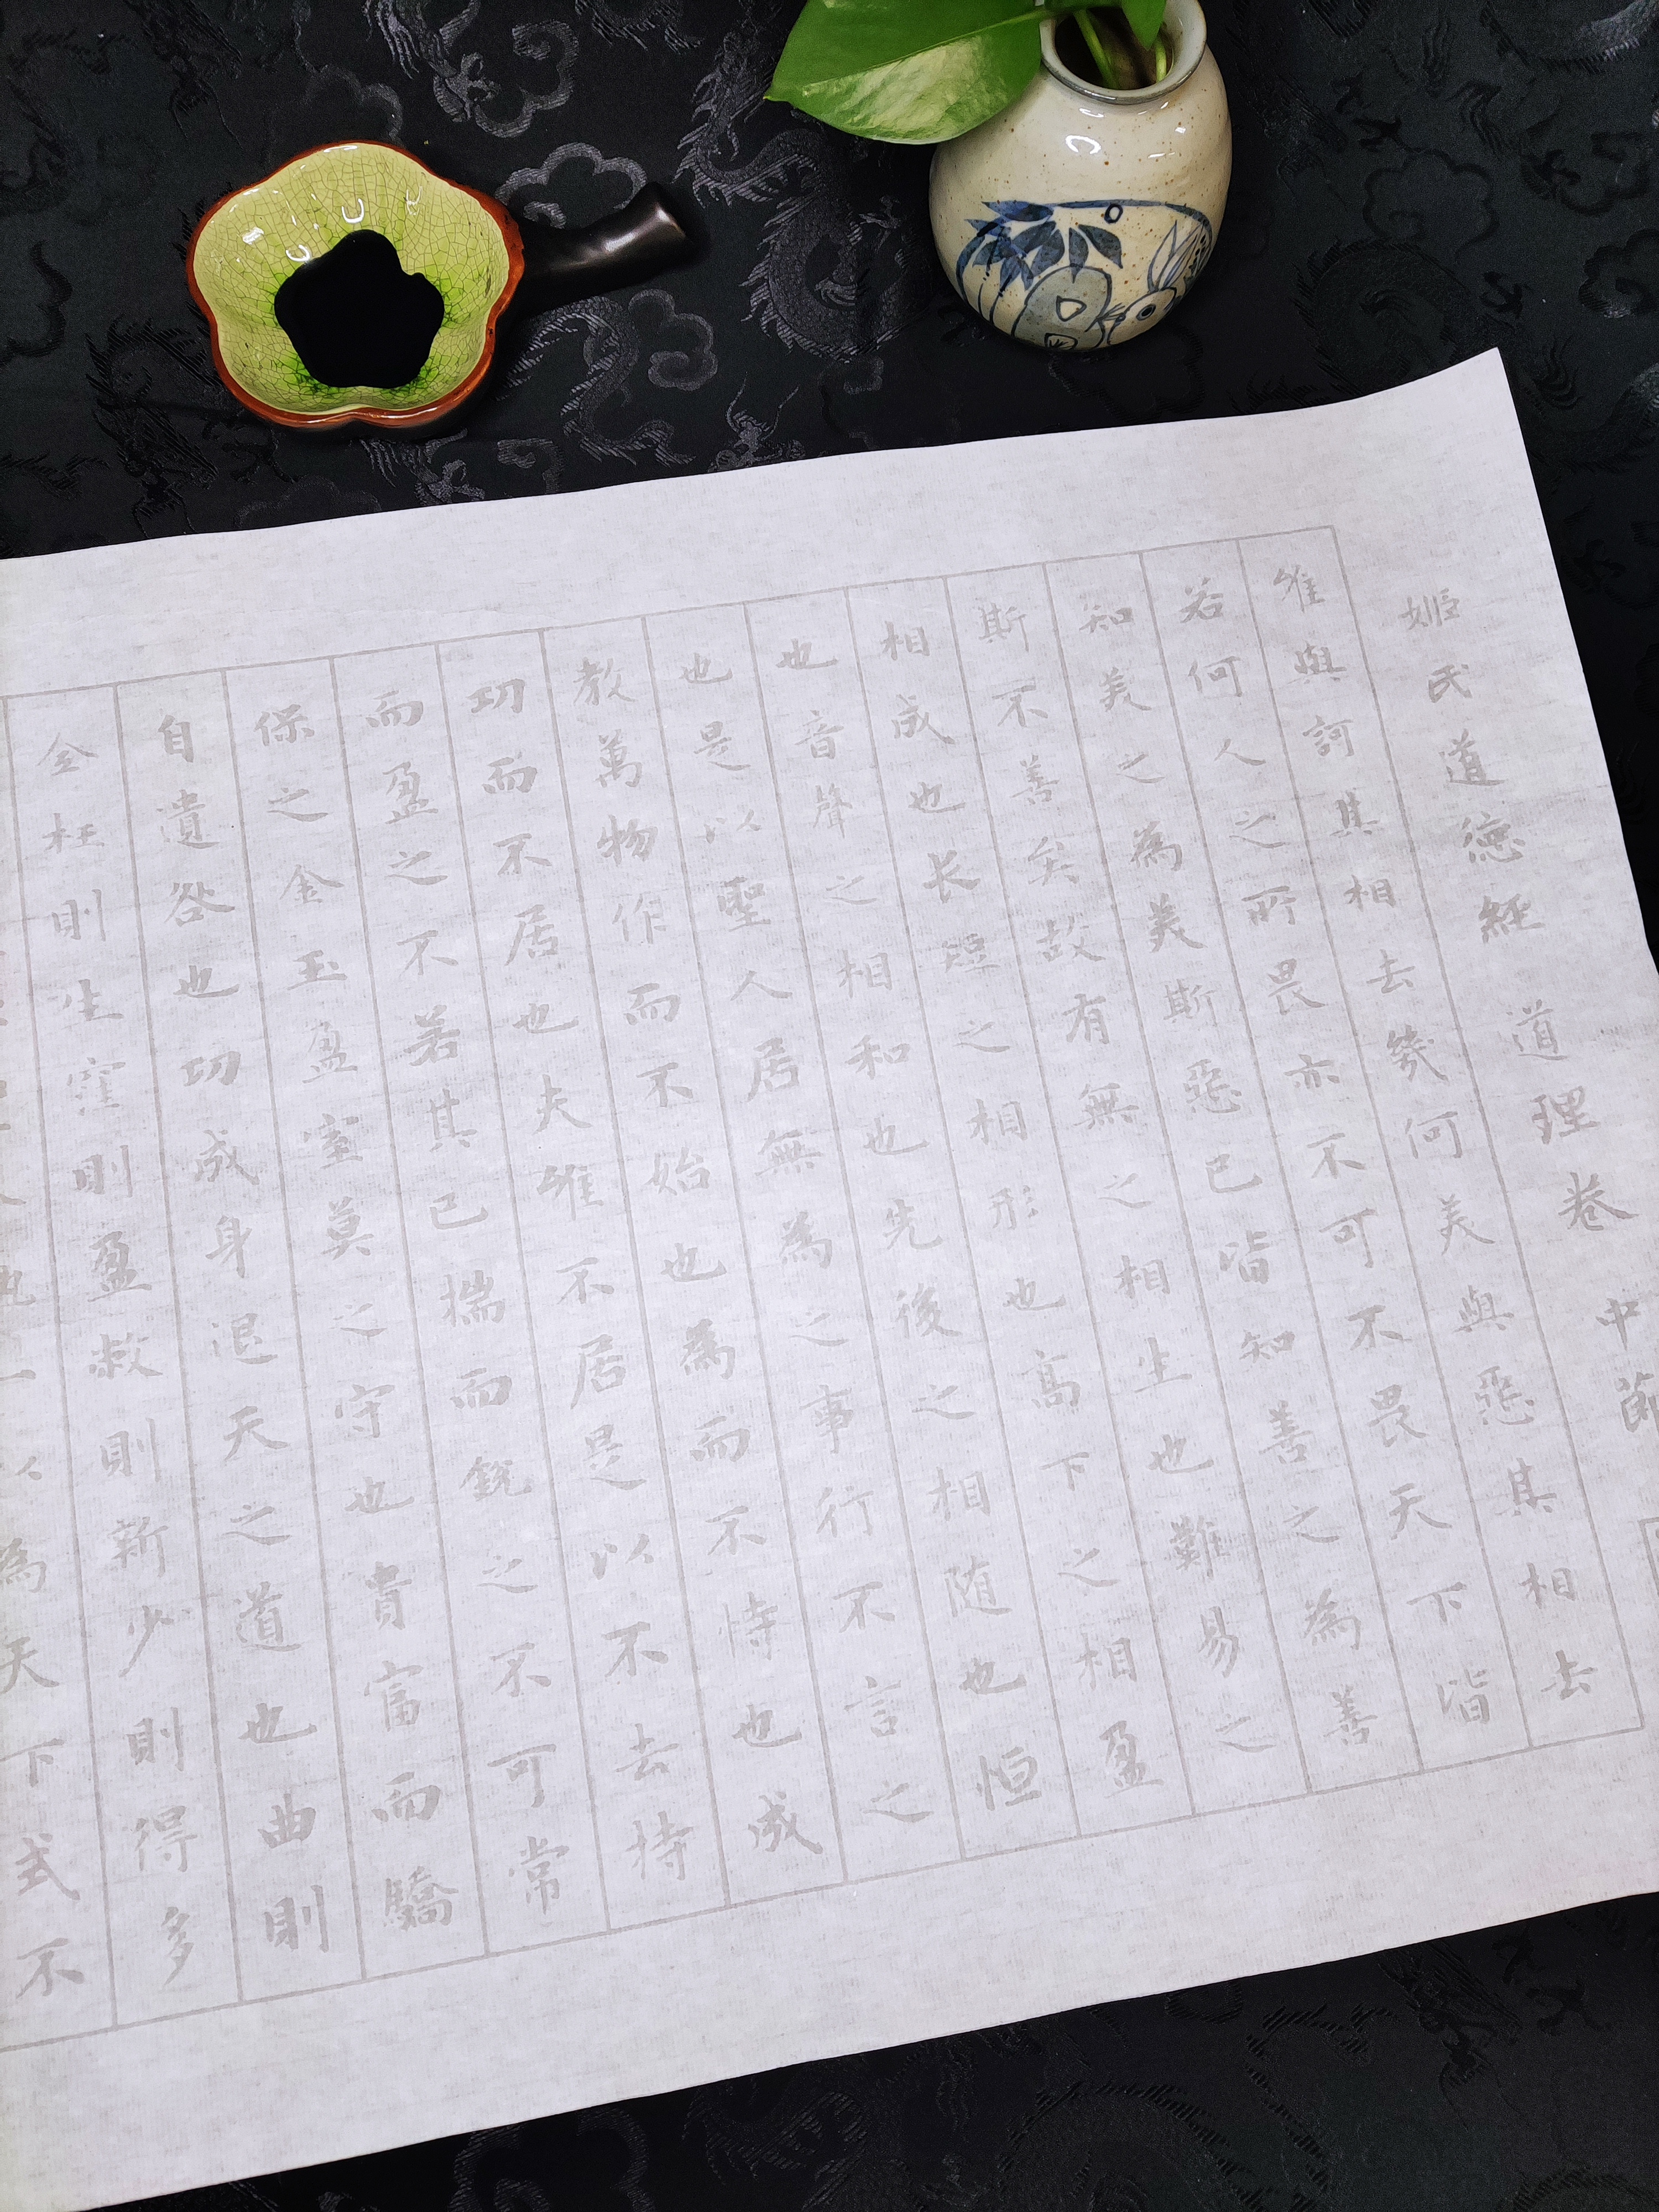 姬氏道德經 道理卷 中
唯與訶其相去幾何美與惡其相去
若何人之所畏亦不可不畏天下皆
知美之為美斯惡已皆知善之為善
斯不善矣故有無之相生也難易之
相成也长短之相形也高下之相盈
也音聲之相和也先後之相随也恒
也是以聖人居無為之事行不言之
教萬物作而不始也為而不恃也成
功而不居也夫唯不居是以不去持
而盈之不若其已揣而銳之不可常
保之金玉盈室莫之守也貴富而驕
自遺咎也功成身退天之道也曲則
全枉則生窪則盈敝則新少則得多
一以為天下式不